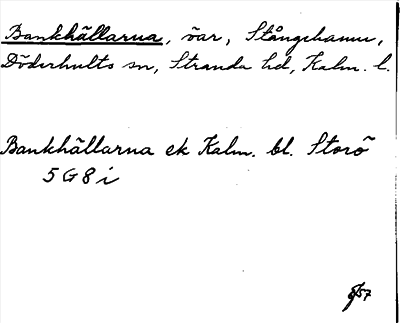 Bankhällarna, öar, Stångehamn,
Döderhults sn, Stranda hd, Kalm. l.
Bankhällarna ek Kalm. bl. Storö
5 G 8 i